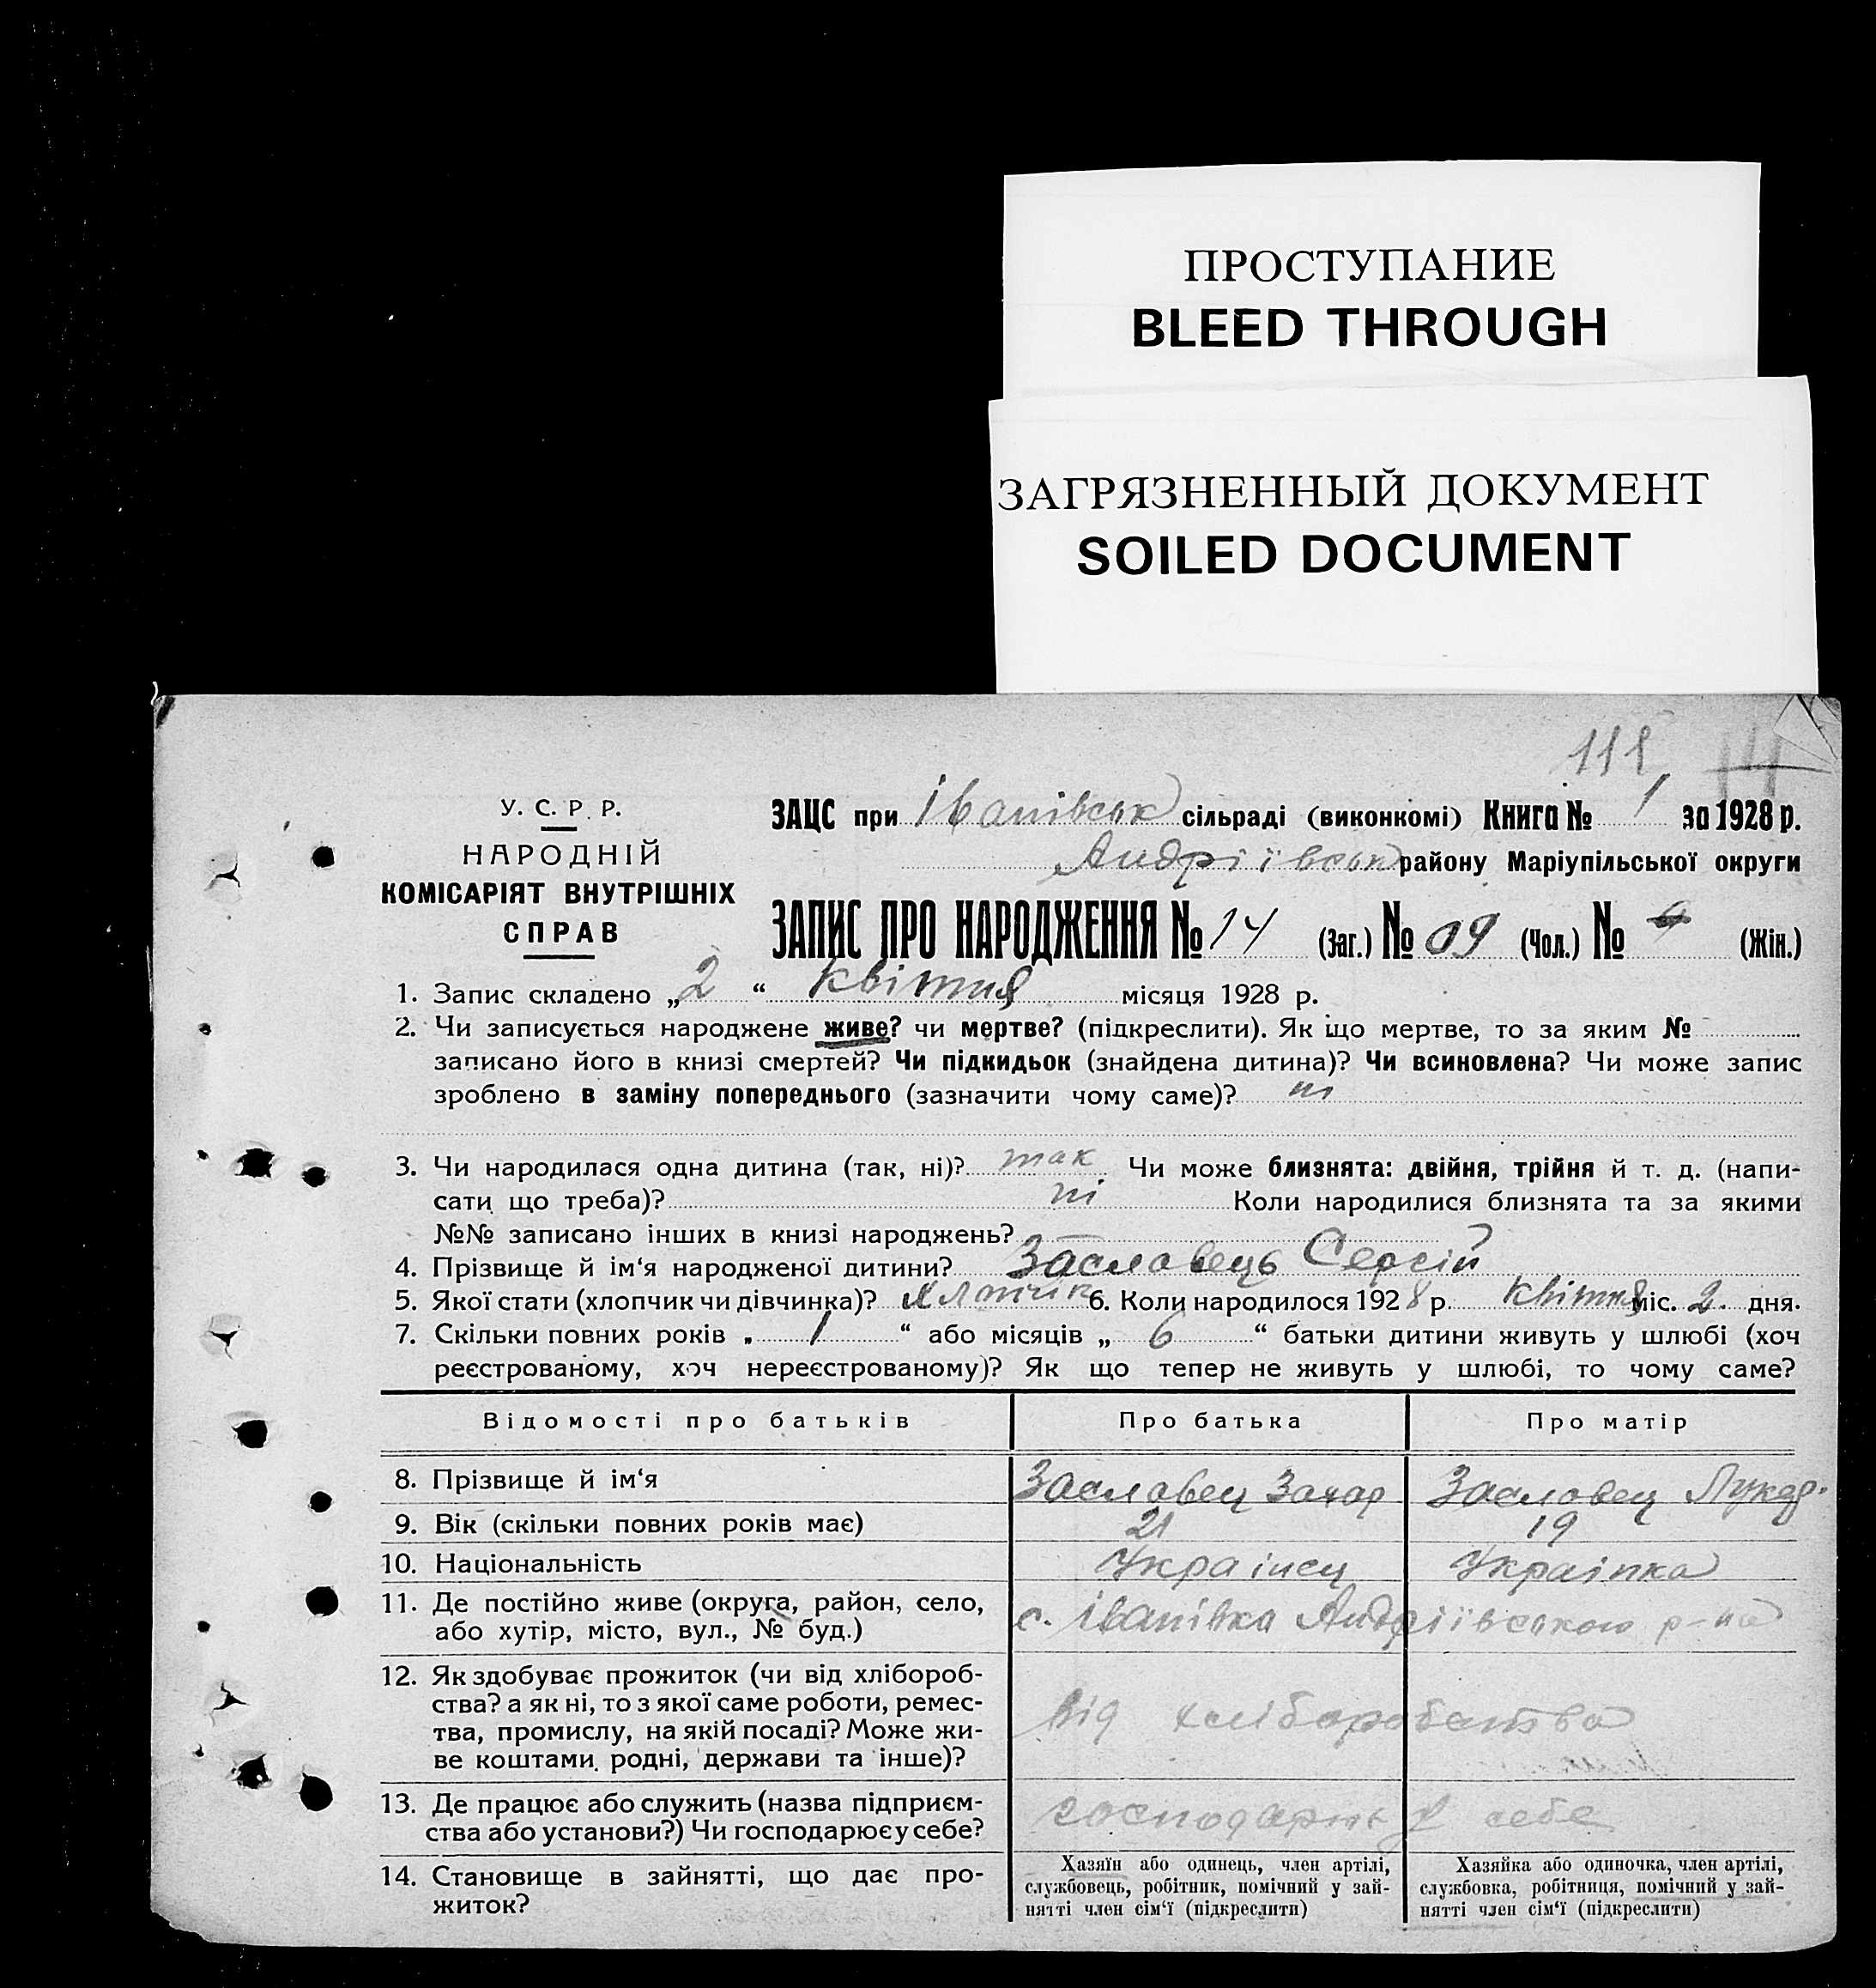 ПРОСТУПАНИЕ
BLEED THROUGH
ЗАГРЯЗНЕННЫЙ ДОКУМЕНТ
SOILED DOCUMENT
111
У. С. Р. Р.
НАРОДНІЙ
КОМІСАРІЯТ ВНУТРІШНІХ
СПРАВ
ЗАЦС при Іванівськ сільраді (виконкомі) Книга № 1 за 1928 р.
Андріївськ району Маріупільської округи
ЗАПИС ПРО НАРОДЖЕННЯ № 14 (Заг.) № 09 (Чол.) № (Жін.)
1. Запис складено „2“ квітня місяця 1928 р.
2. Чи записується народжене живе? чи мертве? (підкреслити). Як що мертве, то за яким №
записано його в книзі смертей? Чи підкидьок (знайдена дитина)? Чи всиновлена? Чи може запис
зроблено в заміну попереднього (зазначити чому саме)? ні
3. Чи народилася одна дитина (так, ні)? так Чи може близнята: двійня, трійня й т. д. (напи-
сати що треба)? ні Коли народилися близнята та за якими
№№ записано інших в книзі народжень?
4. Прізвище й ім‘я народженої дитини? Заславець Сергій
5. Якої стати (хлопчик чи дівчинка)? 6. Коли народилося 1928 р. квітня міс. 2. дня.
7. Скільки повних років „ 1 “ або місяців „ 6 “ батьки дитини живуть у шлюбі (хоч
реєстрованому, хоч нереєстрованому)? Як що тепер не живуть у шлюбі, то чому саме?
Відомості про батьків Про батька Про матір
8. Прізвище й ім‘я Заславец Захар Заславец Лукер.
9. Вік (скільки повних років має) 21 19
10. Національність Украінец Украінка
11. Де постійно живе (округа, район, село,
або хутір, місто, вул., № буд.) с. Іванівка Андріївського р-на
12. Як здобуває прожиток (чи від хлібороб-
ства? а як ні, то з якої саме роботи, ремес-
тва, промислу, на якій посаді? Може жи-
ве коштами родні, держави та інше)? Від хліборобства
13. Де працює або служить (назва підприєм-
ства або установи?) Чи господарює у себе? у себе
14. Становище в зайнятті, що дає про-
житок?
Хазяїн або одинець, член артілі,
службовець, робітник, помічний у зай-
нятті член сім‘ї (підкреслити)
Хазяйка або одиночка, член артілі,
службовка, робітниця, помічний у зай-
нятті член сім‘ї (підкреслити)